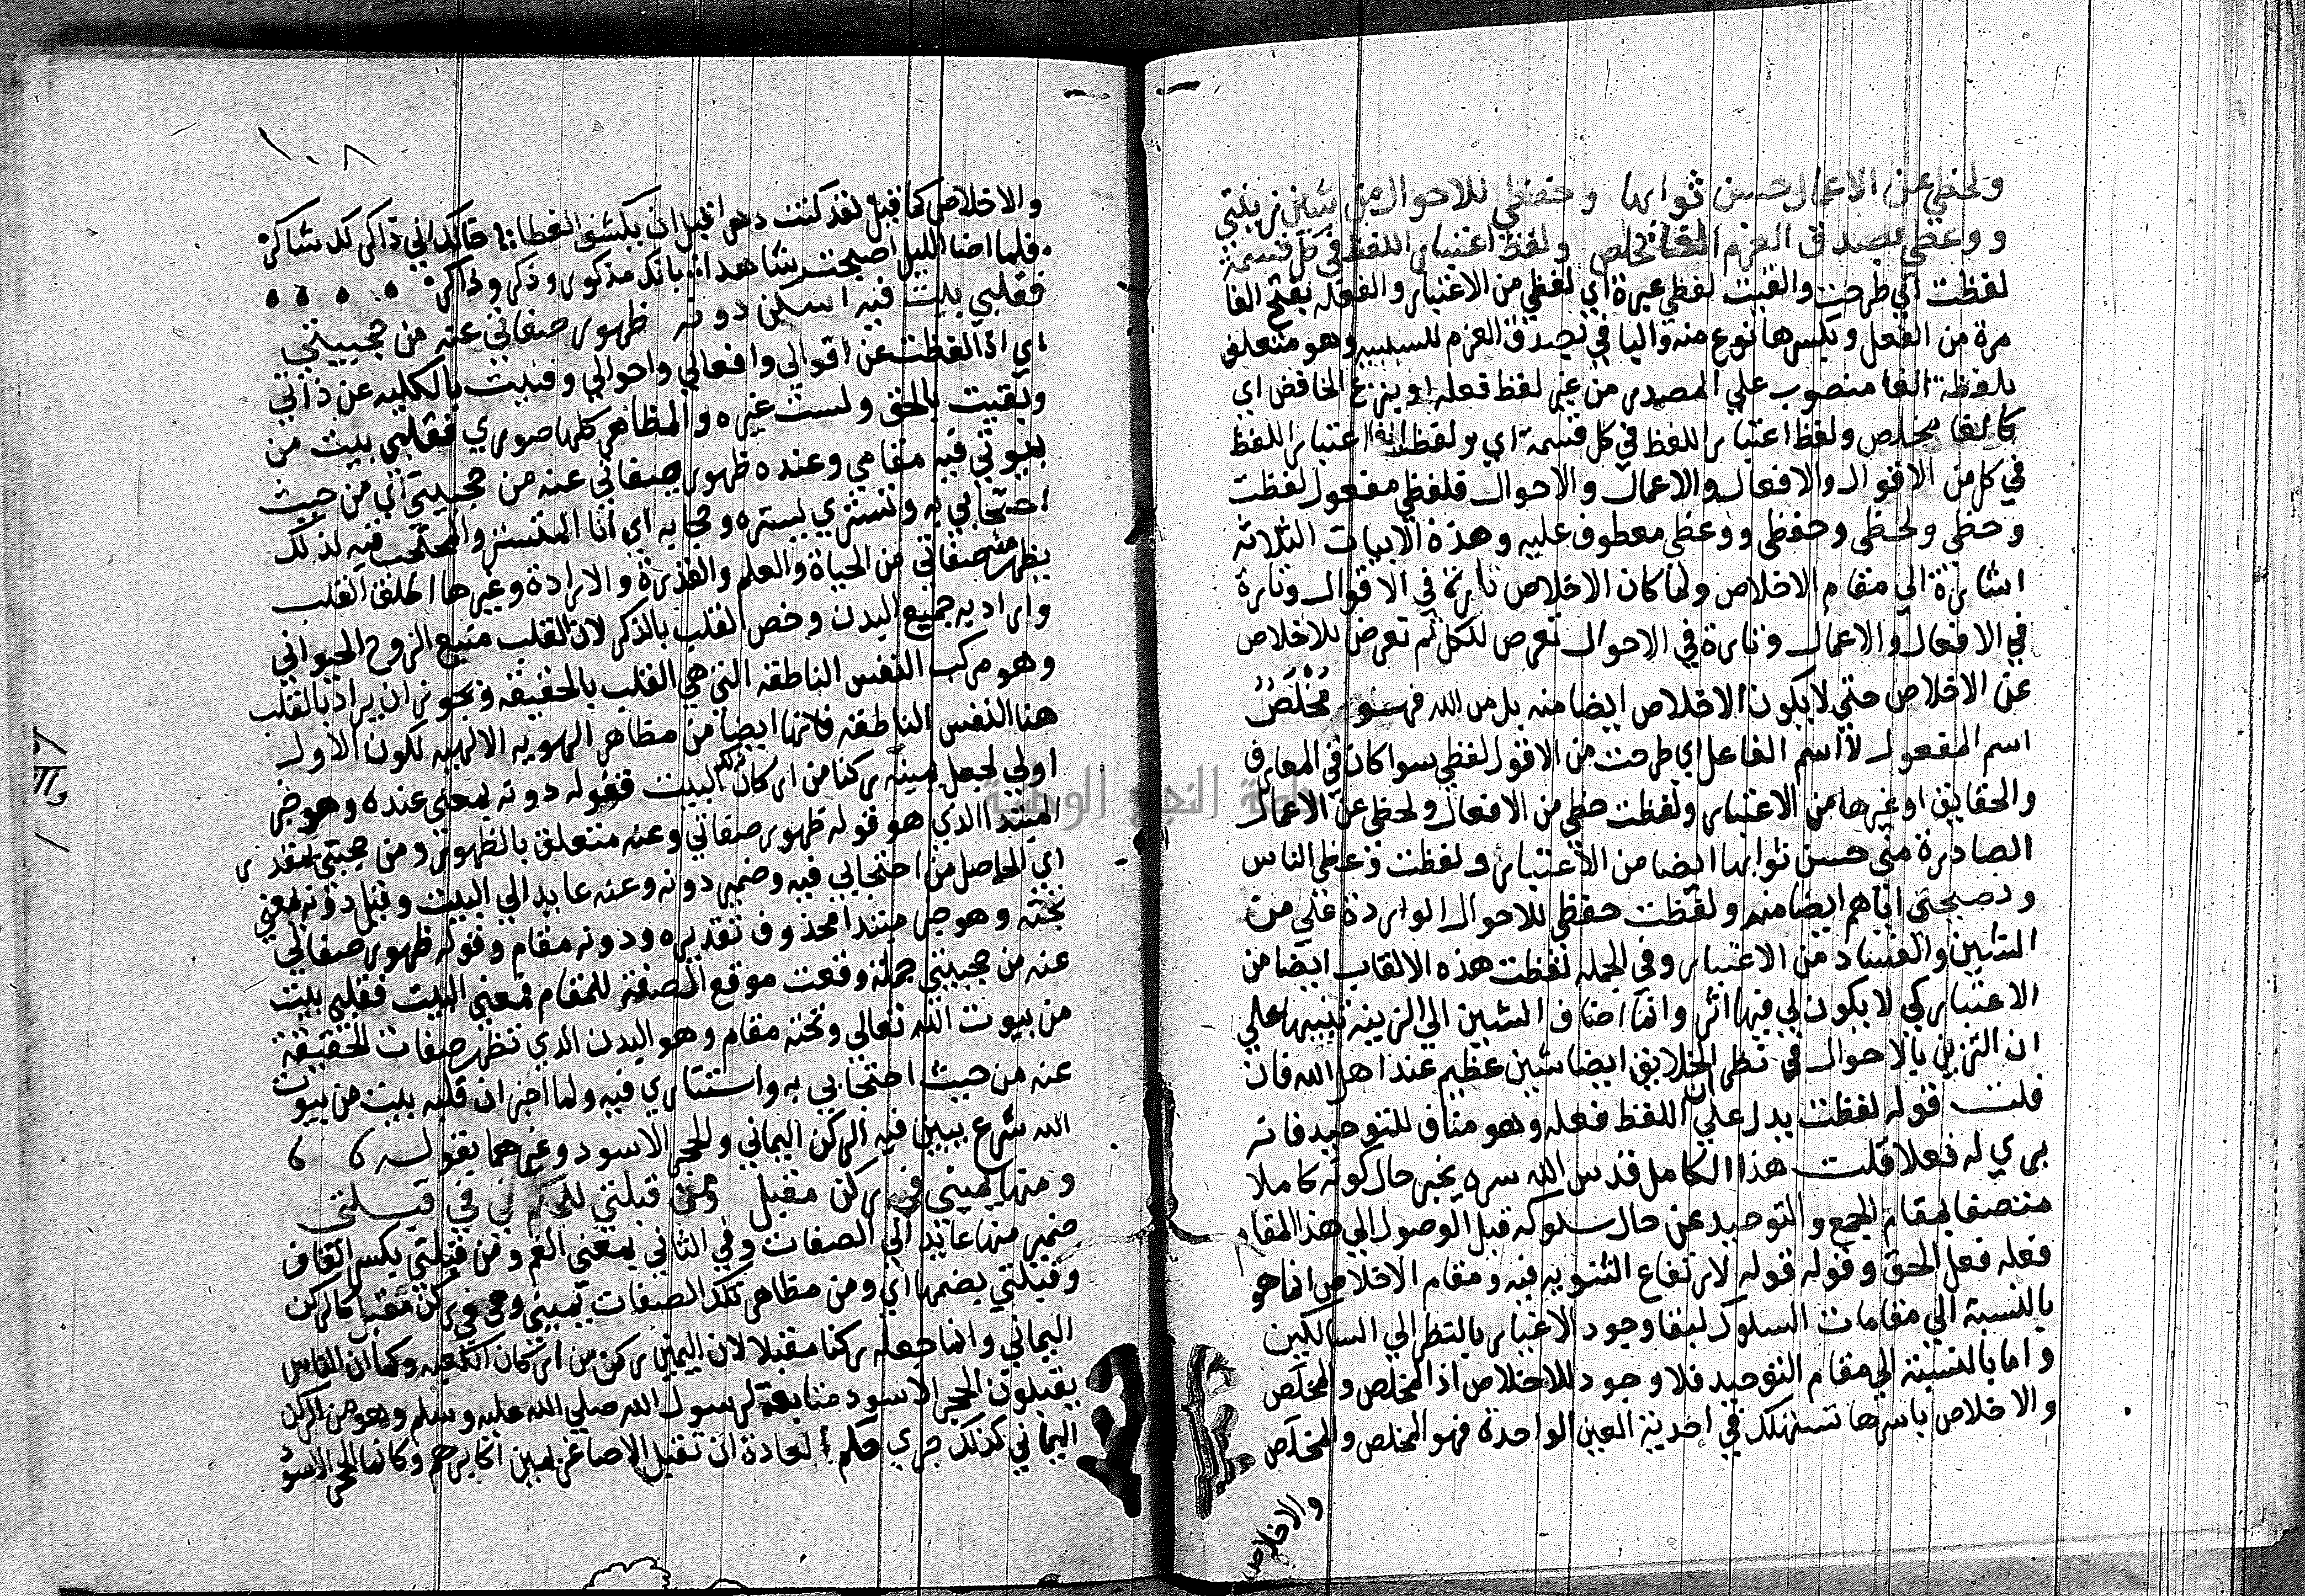 ولحظي عن الاعمال حسن ثوابها وحفظي للاحوال من شين زينتي
ووعظي بصدق العزم القا مخلص ولفظي اعتبار اللفظ في كل قسمة
لفظت اي طرحت والقيت لفظي عبرة اي لفظي من الاعتبار والفعله بفتح الفا
مرة من الفعل وبكسرها نوع منه واليا في بصدق العزم للسببيه وهو متعلق
بلفظة القا منصوب علي المصدر من غير لفظ فعله او بنزع الخافض اي
كالقا مخلص ولفظ اعتبار اللفظ في كل قسمة اي ولفظت اعتبار اللفظ
في كل من الاقوال والافعال والاعمال والاحوال فلفظي مفعول لفظت
وحظي ولحظي وحفظي ووعظي معطوف عليه وهذه الابيات الثلاثه
اشارة الي مقام الاخلاص ولما كان الاخلاص تارة في الاقوال وتارة
في الافعال والاعمال وتارة في الاحوال تعرض للكل ثم تعرض للاخلاص
عن الاخلاص حتي لا يكون الاخلاص ايضا منه بل من الله فهو مخلص
اسم المفعول لا اسم الفاعل اي طرحت من الاقوال لفظي سوا كان في المعارف
والحقايق او غيرها من الاعتبار ولفظت حظي من الافعال ولحظي عن الاعمال
الصادرة مني حسن ثوابها ايضا من الاعتبار ولفظت وعظي الناس
ونصيحتي اياهم ايضا منه ولفظت حفظي للاحوال الواردة علي من
الشين والفساد من الاعتبار وفي الجمله لفظت هذه الالقاب ايضا من
الاعتبار كي لا يكون لي فيها اثر وانما اضاف الشين الي الزينه تنبيها علي
ان التزين بالاحوال في نظر الخلايق ايضا شين عظيم عند اهل الله فان
قلت قوله لفظت يدل علي ان اللفظ فعله وهو مناف للتوحيد فانه
يري له فعلا قلت هذا الكامل قدس الله سره يخبر حال كونه كاملا
متصفا بمقام الجمع والتوحيد عن حال سلوكه قبل الوصول الي هذا المقام
فعله فعل الحق وقوله قوله لارتفاع الثنويه فيه ومقام الاخلاص انما هو
بالنسبة الي مقامات السلوك لبقا وجود الاغيار بالنظر الي السالكين
واما بالنسبة الي مقام التوحيد فلا وجود للاخلاص اذ المخلص والمخلص
والاخلاص باسرها تستهلك في احدية العين الواحدة فهو المخلص والمخلص
والاخلاص
١٠٨
والاخلاص كما قيل لقد كنت دهرا قبل ان يكشف الغطا اخالك اني ذاكر لك شاكر
فلما اضا الليل اصبحت شاهدا بانك مذكور وذكر وذاكر
فقلبي بيت فيه اسكن دونه ظهور صفاتي عنه من حجبيتي
اي اذا لفظت عن اقوالي وافعالي واحوالي وفنيت بالكليه عن ذاتي
وبقيت بالحق ولست غيره والمظاهر كلها صوري فقلبي بيت من
بيوتي فيه مقامي وعنده ظهور صفاتي عنه من حجبيتي اي من حيث
احتجابي به وتستري بستره وحجابه اي انا المتستر والمحتجب فيه لذلك
يظهر منه صفاتي من الحياة والعلم والقدرة والارادة وغيرها اطلق القلب
واراد به جميع البدن وخص القلب بالذكر لان القلب منبع الروح الحيواني
وهو مركب النفس الناطقه التي هي القلب بالحقيقه ويجوز ان يراد بالقلب
هنا النفس الناطقه فانها ايضا من مظاهر الهويه الالهيه لكون الاول
اولي لجعل يمينه ركنا من اركان البيت فقوله دونه بمعني عنده وهو خبر
المبتدا الذي هو قوله ظهور صفاتي وعنه متعلق بالظهور ومن حجبيتي بمقدر
اي الحاصل من احتجابي فيه وضمير دونه وعنه عايد الي البيت وقيل دونه بمعني
تحته وهو خبر مبتدا محذوف تقديره ودونه مقام وقوله ظهور صفاتي
عنه من حجبيتي جملة وقعت موقع الصفة للمقام فمعني البيت فقلبي بيت
من بيوت الله تعالي وتحته مقام وهو البدن الذي تظهر صفات الحقيقة
عنه من حيث احتجابي به واستتاري فيه ولما اخبر ان قلبه بيت من بيوت
الله شرع يبين فيه الركن اليماني والحجر الاسود وغيرهما بقوله
ومنها يميني في ركن مقبل ومن قبلتي للحكم في في قبلتي
ضمير منها عايد الي الصفات وفي الثاني بمعني الفم ومن قبلتي بكسر القاف
وقبلتي بضمها اي ومن مظاهر تلك الصفات يميني وهي في ركن مقبل كالركن
اليماني وانما جعله ركنا مقبلا لان اليمين ركن من اركان الكعبه وكما ان الناس
يقبلون الحجر الاسود متابعة لرسول الله صلي الله عليه وسلم وهو من الركن
اليماني كذلك جري حكم العادة ان تقبل الاصاغر يمين اكابرهم وكانما الحجر الاسود